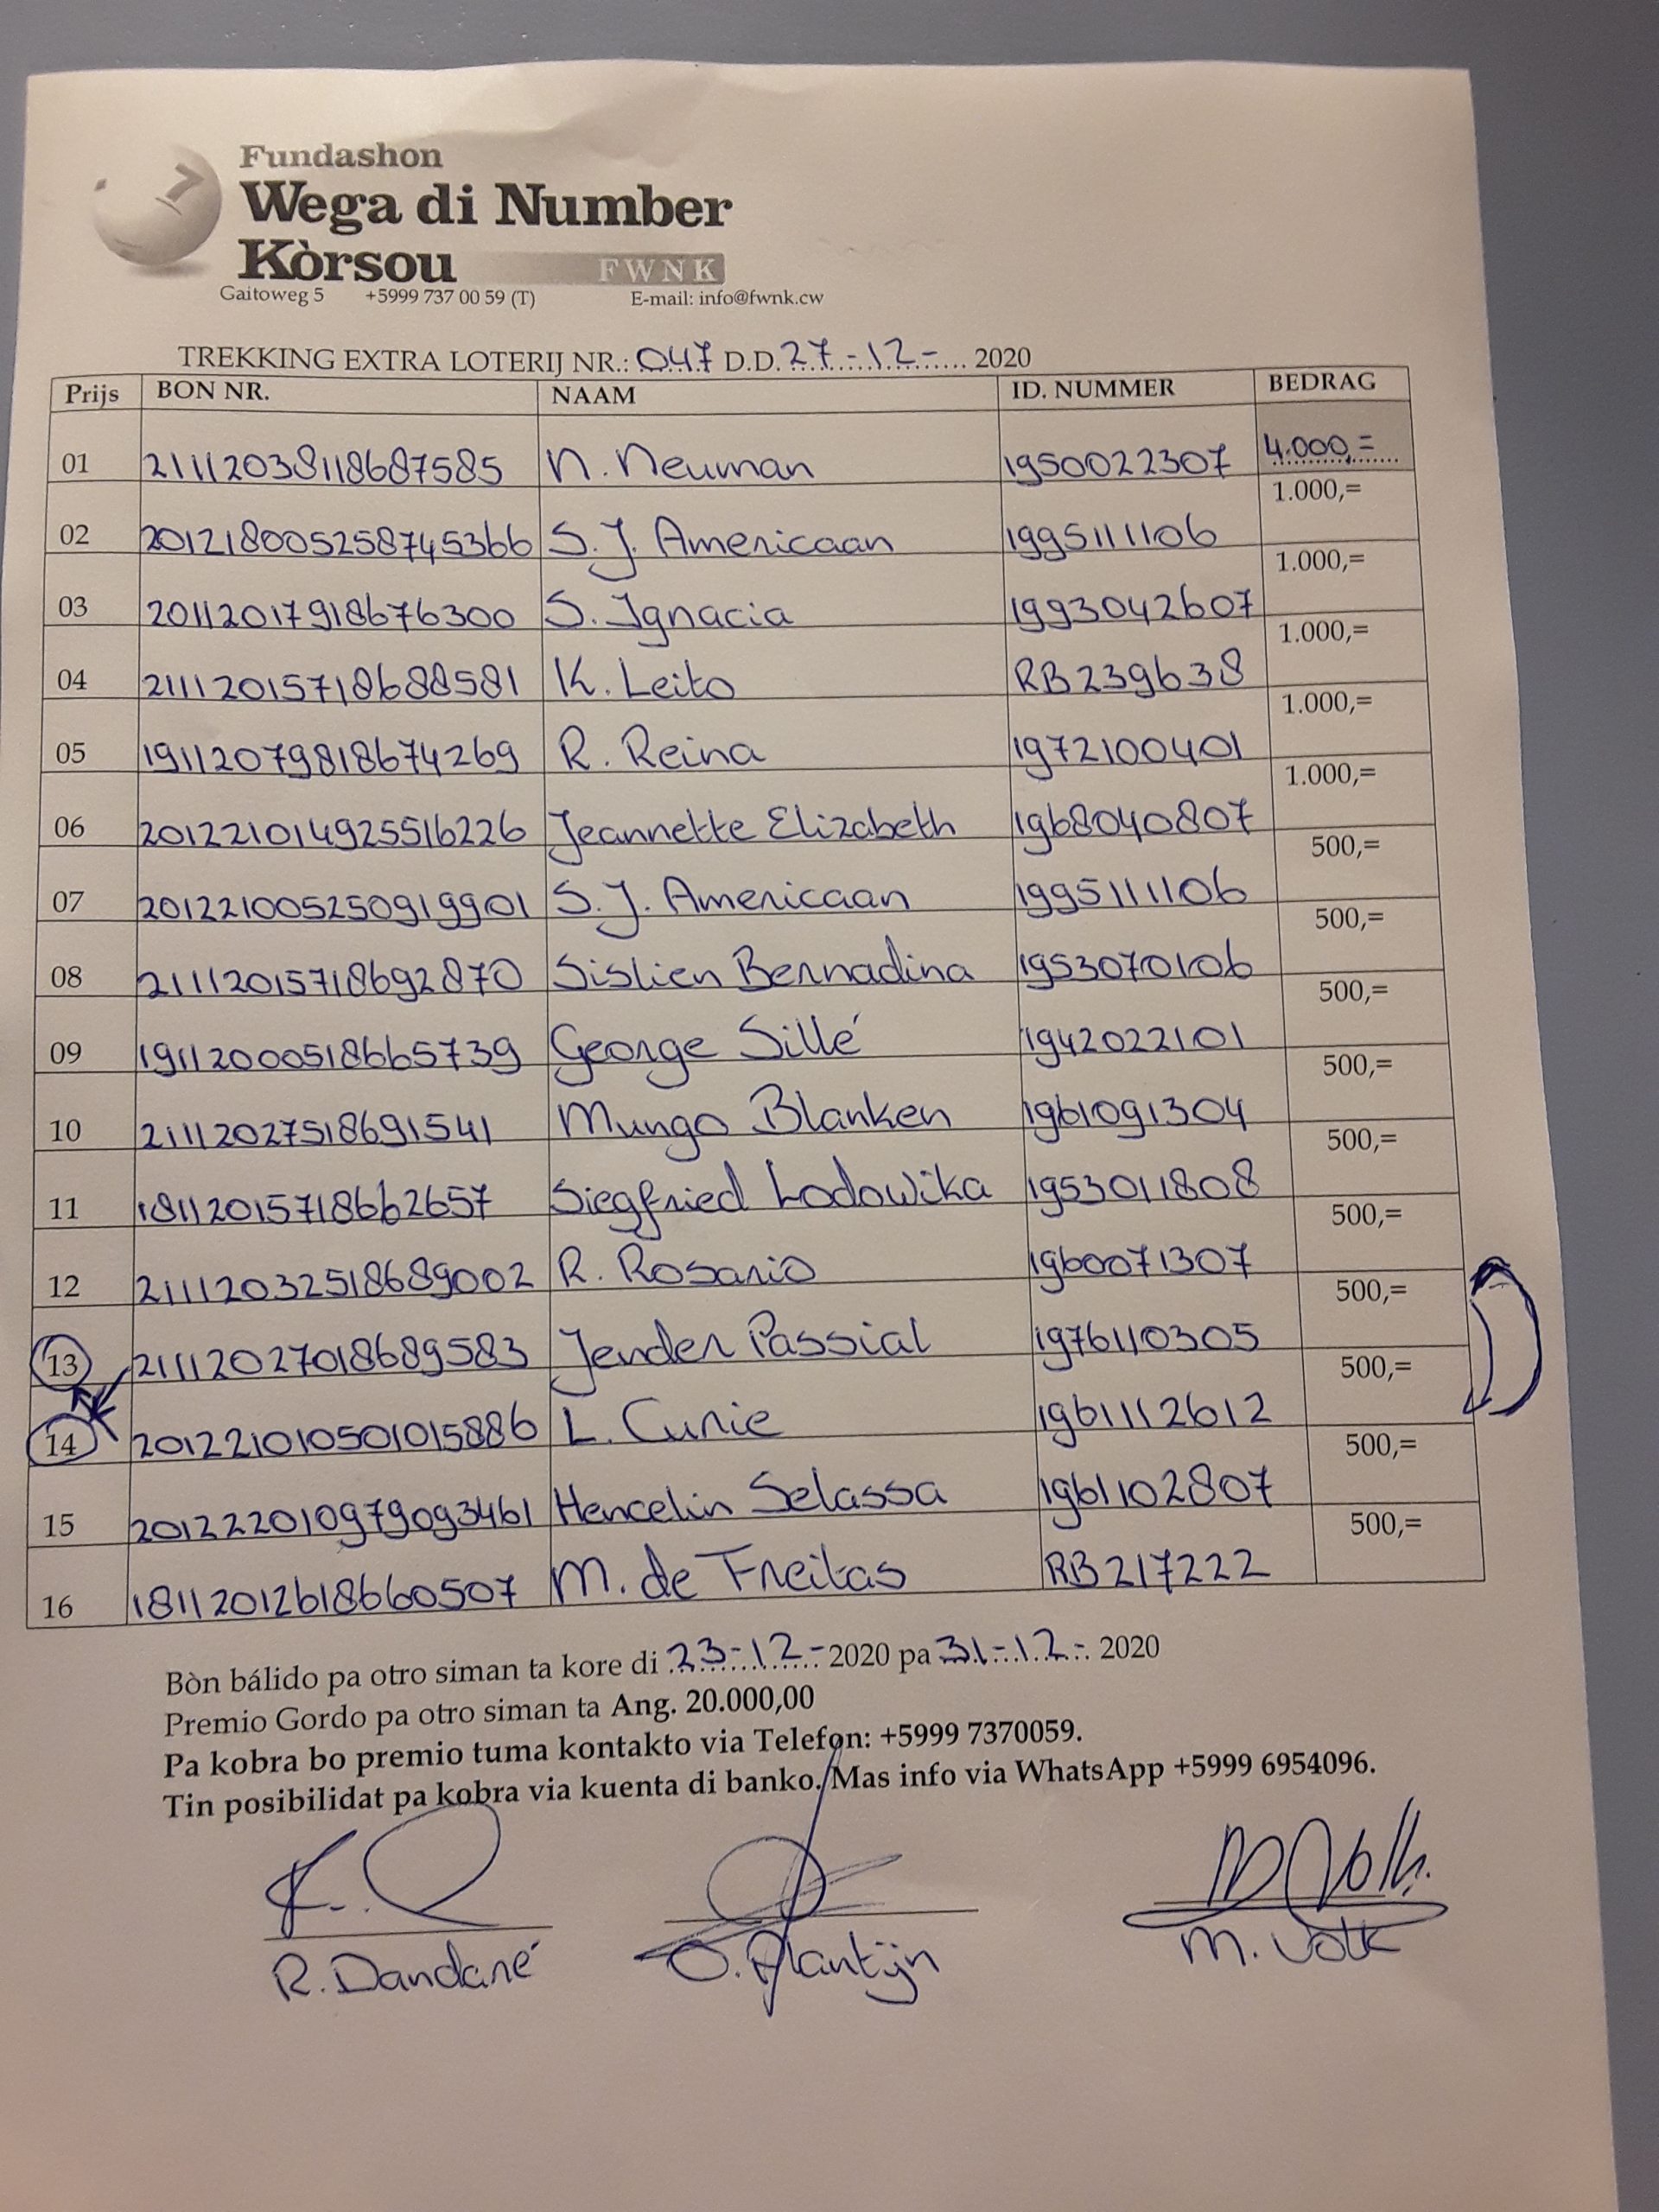 7
Fundashon
Wega di Number
Kòrsou FWNK
Gaitoweg 5 +5999 737 00 59 (T) E-mail: info@fwnk.cw
TREKKING EXTRA LOTERIJ NR.: 047 D.D. 27-12- 2020
Prijs BON NR. NAAM ID. NUMMER BEDRAG
01 21112038118687585 N. Neuman 1950022307 4.000,=
02 201218005258745366 S.J. Americaan 1995111106 1.000,=
03 20112017918676300 S. Ignacia 1993042607 1.000,=
04 21112015718688581 K. Leito RB239638 1.000,=
05 19112079818674269 R. Reina 1972100401 1.000,=
06 201221014925516226 Jeannette Elizabeth 1968040807 1.000,=
07 201221005250919901 S.J. Americaan 1995111106 500,=
08 21112015718692870 Sislien Bernadina 1953070106 500,=
09 19112000518665739 George Sillé 1942022101 500,=
10 21112027518691541 Mungo Blanken 1961091304 500,=
11 18112015718662657 Siegfried Lodowika 1953011808 500,=
12 21112032518689002 R. Rosario 1960071307 500,=
13 21112027018689583 Jender Passial 1976110305 500,=
14 201221010501015886 L. Curie 1961112612 500,=
15 201222010979093461 Hencelin Selassa 1961102807 500,=
16 18112012618660507 M. de Freitas RB217222 500,=
Bòn bálido pa otro siman ta kore di 23-12- 2020 pa 31-12- 2020
Premio Gordo pa otro siman ta Ang. 20.000,00
Pa kobra bo premio tuma kontakto via Telefon: +5999 7370059.
Tin posibilidat pa kobra via kuenta di banko. Mas info via WhatsApp +5999 6954096.
R. Dandané O. Plantijn M. Volk